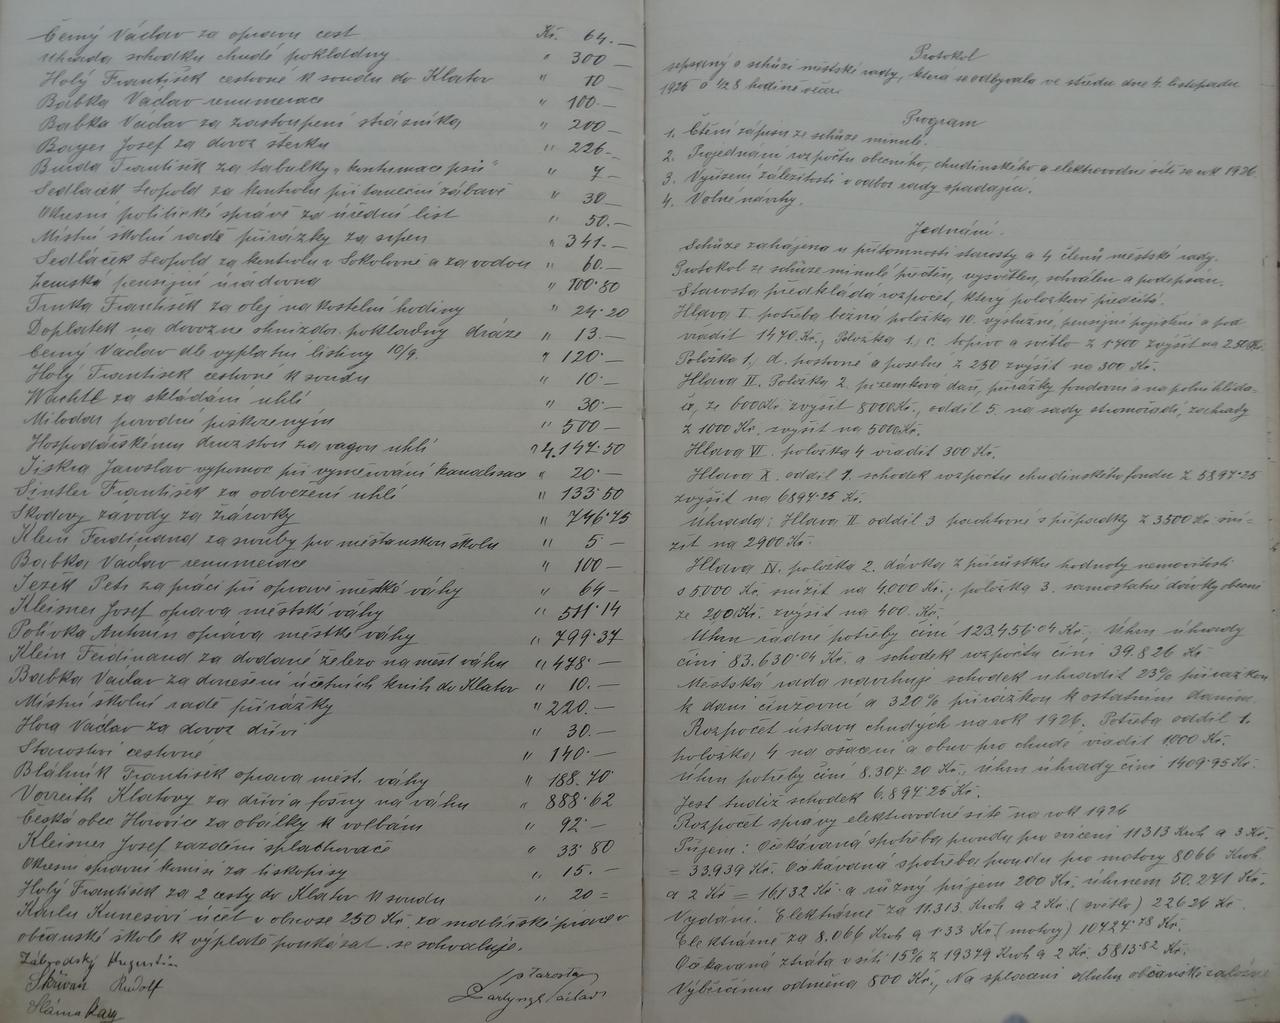 Černý Václav za opravu cest Kč. 64.—
Úhrada schodku chudé pokladny " 300—
Holý František cestovné k soudu do Klatov " 10—
Babka Václav renumerace " 100.—
Babka Václav za zastoupení strážníka " 200—
Bayer Josef za dovoz štěrku " 226—
Buda František za tabulky „kontumace psů" " 7—
Sedláček Leopold za kontrolu při taneční zábavě " 30—
Okresní politické správě za úřední list " 50.—
Místní školní radě přirážky za srpen " 341.—
Sedláček Leopold za kontrolu v Sokolovně a za vodou " 60.—
Zemská pensijní úřadovna " 100·80
Trnka František za olej na kostelní hodiny " 24·20
Doplatek na dovozné ohnivzdo. pokladny dráze " 13.—
Černý Václav dle výplatní listiny 10/9. " 120·—
Holý František cestovné k soudu " 10·—
Wachtl za skládání uhlí " 30·—
Milodar povodní poškozeným " 500—
Hospodářskému družstvu za vagon uhlí " 4.147·50
Jiskra Jaroslav výpomoc při vyměřování kanalisace " 20·—
Šintler František za odvezení uhlí " 133·50
Škodovy závody za žárovky " 746·75
Klein Ferdinand za šrouby pro měšťanskou školu " 5—
Babka Václav renumerace " 100—
Ježek Petr za práci při opravě městské váhy " 64—
Kleisner Josef oprava městské váhy " 511·14
Polívka Antonín oprava městské váhy " 799·37
Klein Ferdinand za dodané železo na měst váhu " 478·—
Babka Václav za donešení účetních knih do Klatov " 10.—
Místní školní radě přirážky " 220.—
Hora Václav za dovoz dříví " 30.—
Starostovi cestovné " 140·—
Bláhník František oprava měst. váhy " 188.40·
Vorreith Klatovy za dříví a fošny na váhu " 888·62
Česká obec Horovice za obálky k volbám " 92·—
Kleisner Josef zazdění splachovače " 33·80
Okresní správní komisi za tiskopisy " 15.—
Holý František za 2 cesty do Klatov k soudu " 20=
Karlu Kunešovi účet v obnose 250 Kč. za malířské práce v
občanské škole k výplatě poukázat se schvaluje.
Zábrodský Augustin
Skřivan Rudolf
starosta
Václav
Protokol
sepsaný o schůzi městské rady, která se odbývala ve středu dne 4. listopadu
1925 o ½8 hodině večer.
Program
1. Čtení zápisu ze schůze minulé.
2. Projednání rozpočtu obecního, chudinského a elektrovodné sítě za rok 1926.
3. Vyřízení záležitostí v odbor rady spadající.
4. Volné návrhy.
Jednání.
Schůze zahájena u přítomnosti starosty a 4 členů městské rady.
Protokol ze schůze minulé přečten, vysvětlen, schválen a podepsán.
Starosta předkládá rozpočet, který položkově předčítá.
Hlava I. potřeba běžná položka 10. výslužné, pensijní pojistění a pod
vřadit 1470 Kč., Položka 1., c. topivo a světlo z 1400 zvýšit na 2500 Kč.
Položka 1., d. poštovné a poselné z 250 zvýšit na 300 Kč.
Hlava II. Položka 2. pozemková daň, přirážky fondovní a na polní hlída-
če, ze 6000 Kč. zvýšit 8000 Kč., oddíl 5. na sady stromořadí, zahrady
z 1000 Kč. zvýšit na 5000 Kč.
Hlava VI. položka 4 vřadit 300 Kč.
Hlava X. oddíl 1. schodek rozpočtu chudinského fondu z 5894·25
zvýšit na 6894·25 Kč.
Úhrada: Hlava II oddíl 3 pachtovné s případky z 3500 Kč sní-
žit na 2900 Kč.
Hlava IV. položka 2. dávka z přírůstku hodnoty nemovitostí
s 5000 Kč. snížit na 4.000 Kč., položka 3. samostatné dávky obecní
ze 200 Kč. zvýšit na 400. Kč.
Úhrn řádné potřeby činí 123.456·04 Kč, Úhrn úhrady
činí 83.630·04 Kč. a schodek rozpočtu činí 39.826 Kč
Městská rada navrhuje schodek uhradit 23% přirážkou
k dani činžovní a 320% přirážkou k ostatním daním.
Rozpočet ústavu chudých na rok 1926. Potřeba oddíl 1.
položka 4 na ošacení a obuv pro chudé vřadit 1000 Kč.
Úhrn potřeby činí 8.304·20 Kč., Úhrn úhrady činí 1409·95 Kč.
Jest tudíž schodek 6.894·25 Kč.
Rozpočet správy elektrovodné sítě na rok 1926
Příjem: Očekávaná spotřeba proudu pro svícení 11313 Kwh a 3 Kč.
= 33.939 Kč. Očekávaná spotřeba proudu pro motory 8066 Kwh
a 2 Kč = 16.132 Kč. a různý příjem 200 Kč, úhrnem 50.271 Kč.
Vydání: Elektrárně za 11.313 Kwh a 2 Kč. (světlo) 22626 Kč.
Elektrárně za 8.066 Kwh a 1·33 Kč (motory) 10727·78 Kč.
Očekávaná ztráta v síti 15% z 19379 Kwh a 2 Kč. 5813·82 Kč.
Výběrčímu odměna 800 Kč., Na splacení dluhu občanské záložně